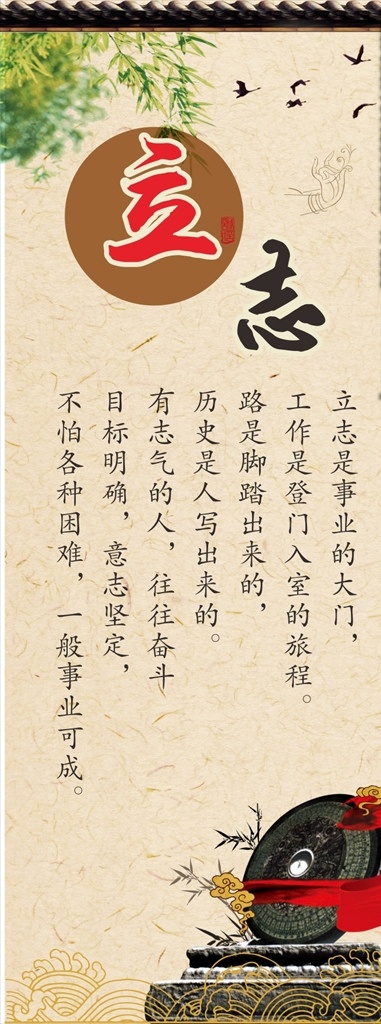 立志
立志是事业的大门，
工作是登门入室的旅程。
路是脚踏出来的，
历史是人写出来的。
有志气的人，往往奋斗
目标明确，意志坚定，
不怕各种困难，一般事业可成。